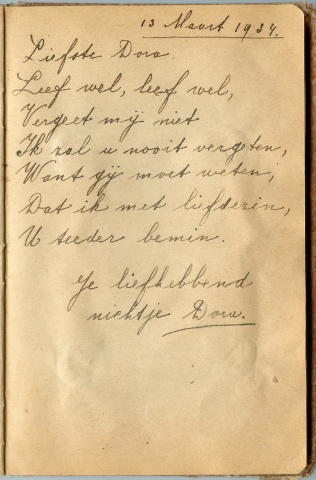 13 Maart 1934.
Liefste Dora
Leef wel, leef wel,
Vergeet mij niet
Ik zal u nooit vergeten,
Want gij moet weten,
Dat ik met liefdezin,
U teeder bemin.
Je liefhebbend
nichtje Dora.